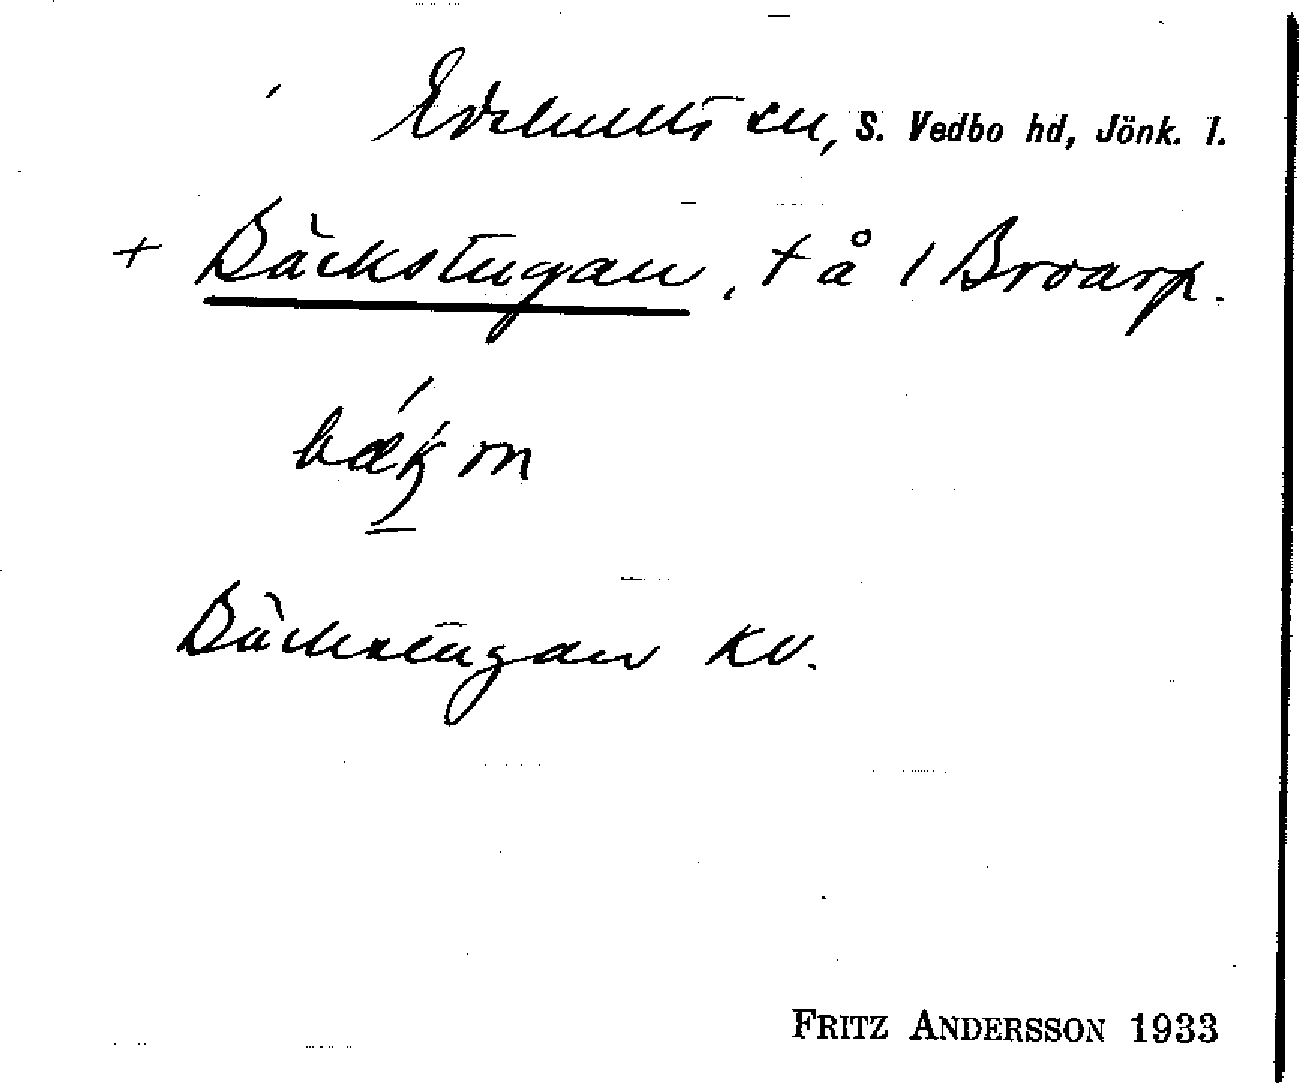 Edshults sn, S. Vedbo hd, Jönk. l.
+ Bäckstugan, t å 1 Broarp.
Bäckstugan KV.
FRITZ ANDERSSON 1933